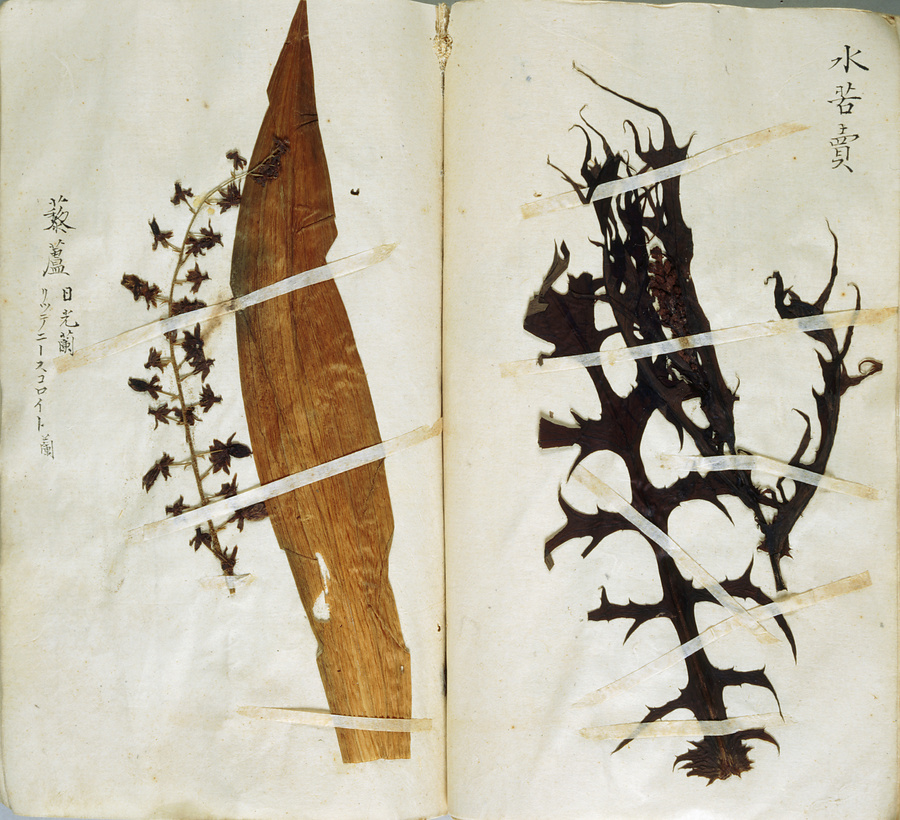 水苦賣
藜蘆 日光蘭
リツテニースコロイト 蘭